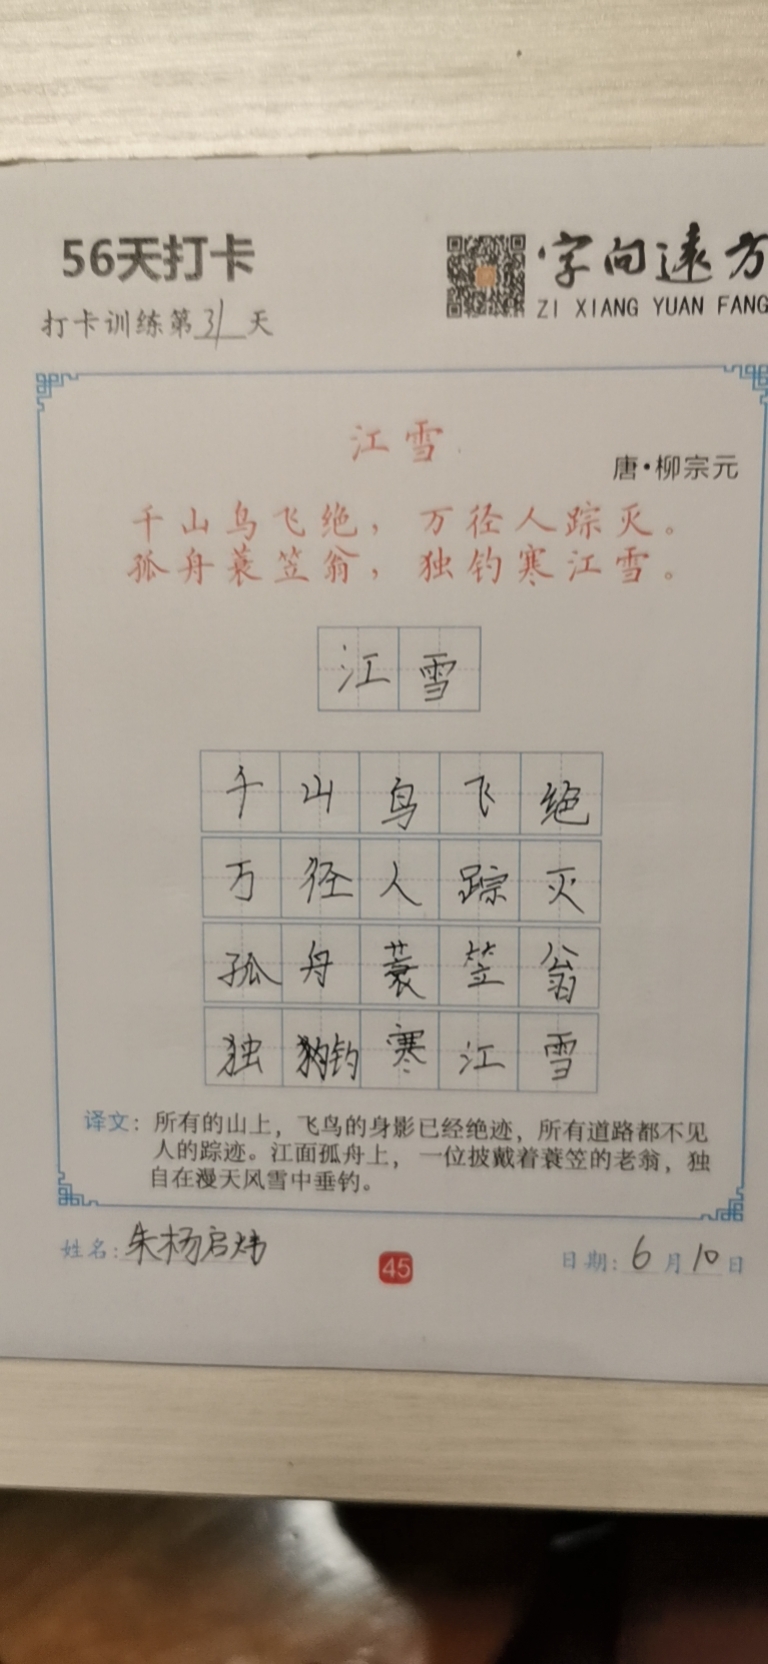 56天打卡
字向远方
ZI XIANG YUAN FANG
打卡训练第31天
江雪
唐·柳宗元
千山鸟飞绝，万径人踪灭。
孤舟蓑笠翁，独钓寒江雪。
江雪
千山鸟飞绝
万径人踪灭
孤舟蓑笠翁
独钓寒江雪
译文：所有的山上，飞鸟的身影已经绝迹，所有道路都不见
人的踪迹。江面孤舟上，一位披戴着蓑笠的老翁，独
自在漫天风雪中垂钓。
姓名：朱杨启炜
45
日期：6月10日